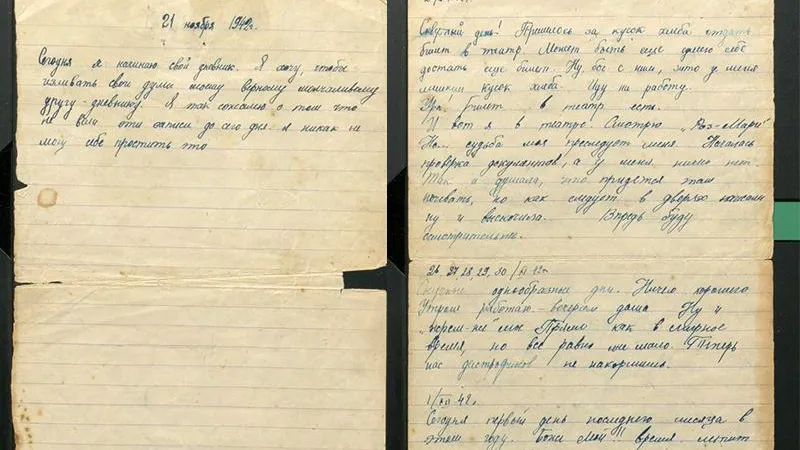 21 ноября 1942г.
Сегодня я начинаю свой дневник. Я хочу, чтобы
изливать свои думы моему верному молчаливому
другу - дневнику. Я так сожалею о том что
не вела эти записи до сего дня. И никак не
могу себе простить это
Скучный день! Пришлось за кусок хлеба отдать
билет в театр. Может быть еще себе
достать еще билет. Ну, бог с ним, зато у меня
лишний кусок хлеба. Иду на работу.
Ура, билет в театр есть.
И вот я в театре. Смотрю „Роз-Мари"
Но... судьба моя преследует меня. Началась
проверка документов, а у меня ничего нет.
Так и думала, что придется там
ночевать, но как следует в дверях нажали
ну и выскочила. Впредь буду
осмотрительнее.
26, 27, 28, 29, 30/XI 42г.
Скучные однообразные дни. Ничего хорошего
Утром работаю - вечером дома Ну и
кормят-не Прямо как в мирное
время, но все равно мне мало. Теперь
нас дистрофиков не накормишь.
1/XII 42г.
Сегодня первый день последнего месяца в
этом году. Боже мой!!! время летит